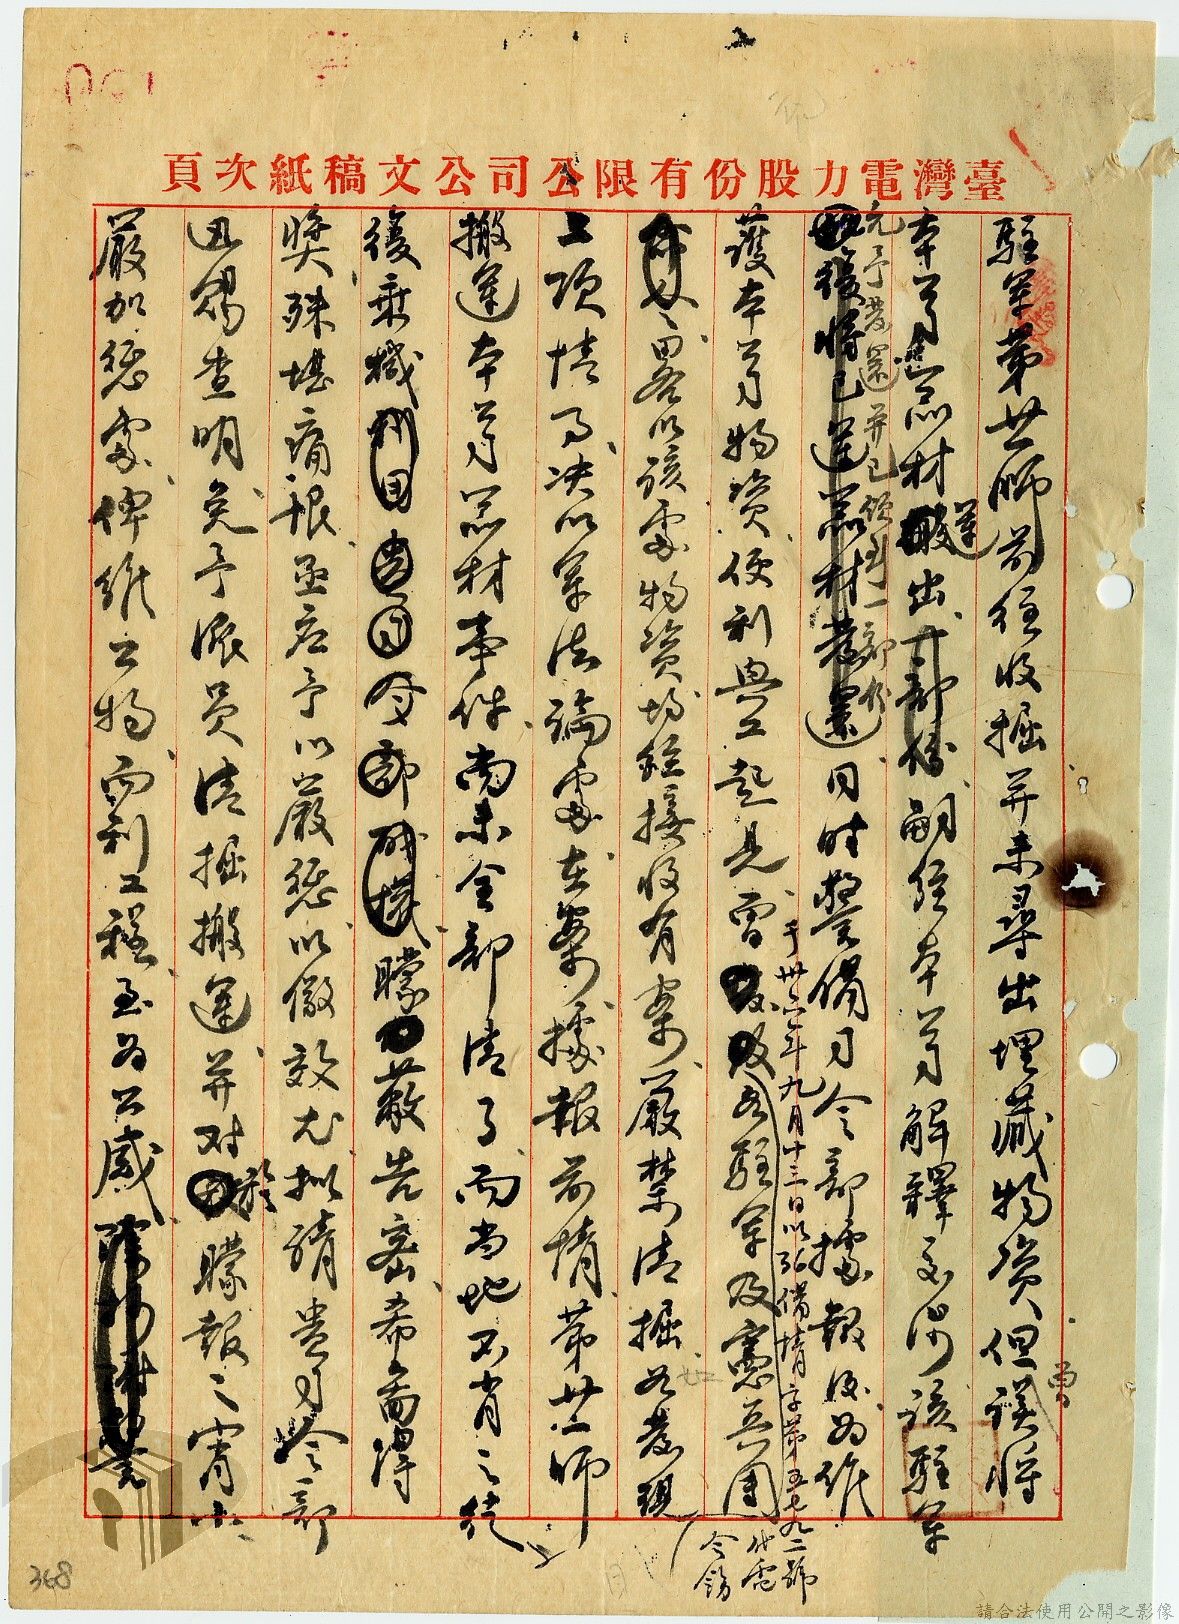 臺灣電力股份有限公司公文稿紙次頁
駐軍第廿一師前往收掘并未尋出埋藏物資但誤將
本公司器材搬運出一部份嗣經本公司解釋交涉該駐軍
允予發還并已領到一部份
後將已運器材發還同時警備司令部據報後為維
護本公司物資便利與工起見曾
于卅六年九月十三日以36備情字第五七九二號代電
駐軍及憲兵團
令飭
畧以該處物資均經接收有案嚴禁清掘如發現
上項情事決以軍法論處在案據報前情第廿一師
搬運本公司器材事件尚未全部清了而當地不肖之徒
復乘機朦蔽告密希圖得
獎殊堪痛恨亟应予以嚴懲以儆效尤拟請貴司令部
迅賜查明免予派員清掘搬運并对於朦報之宵小
嚴加懲處俾維公物而利工程至為公感
368
請合法使用公開之影像